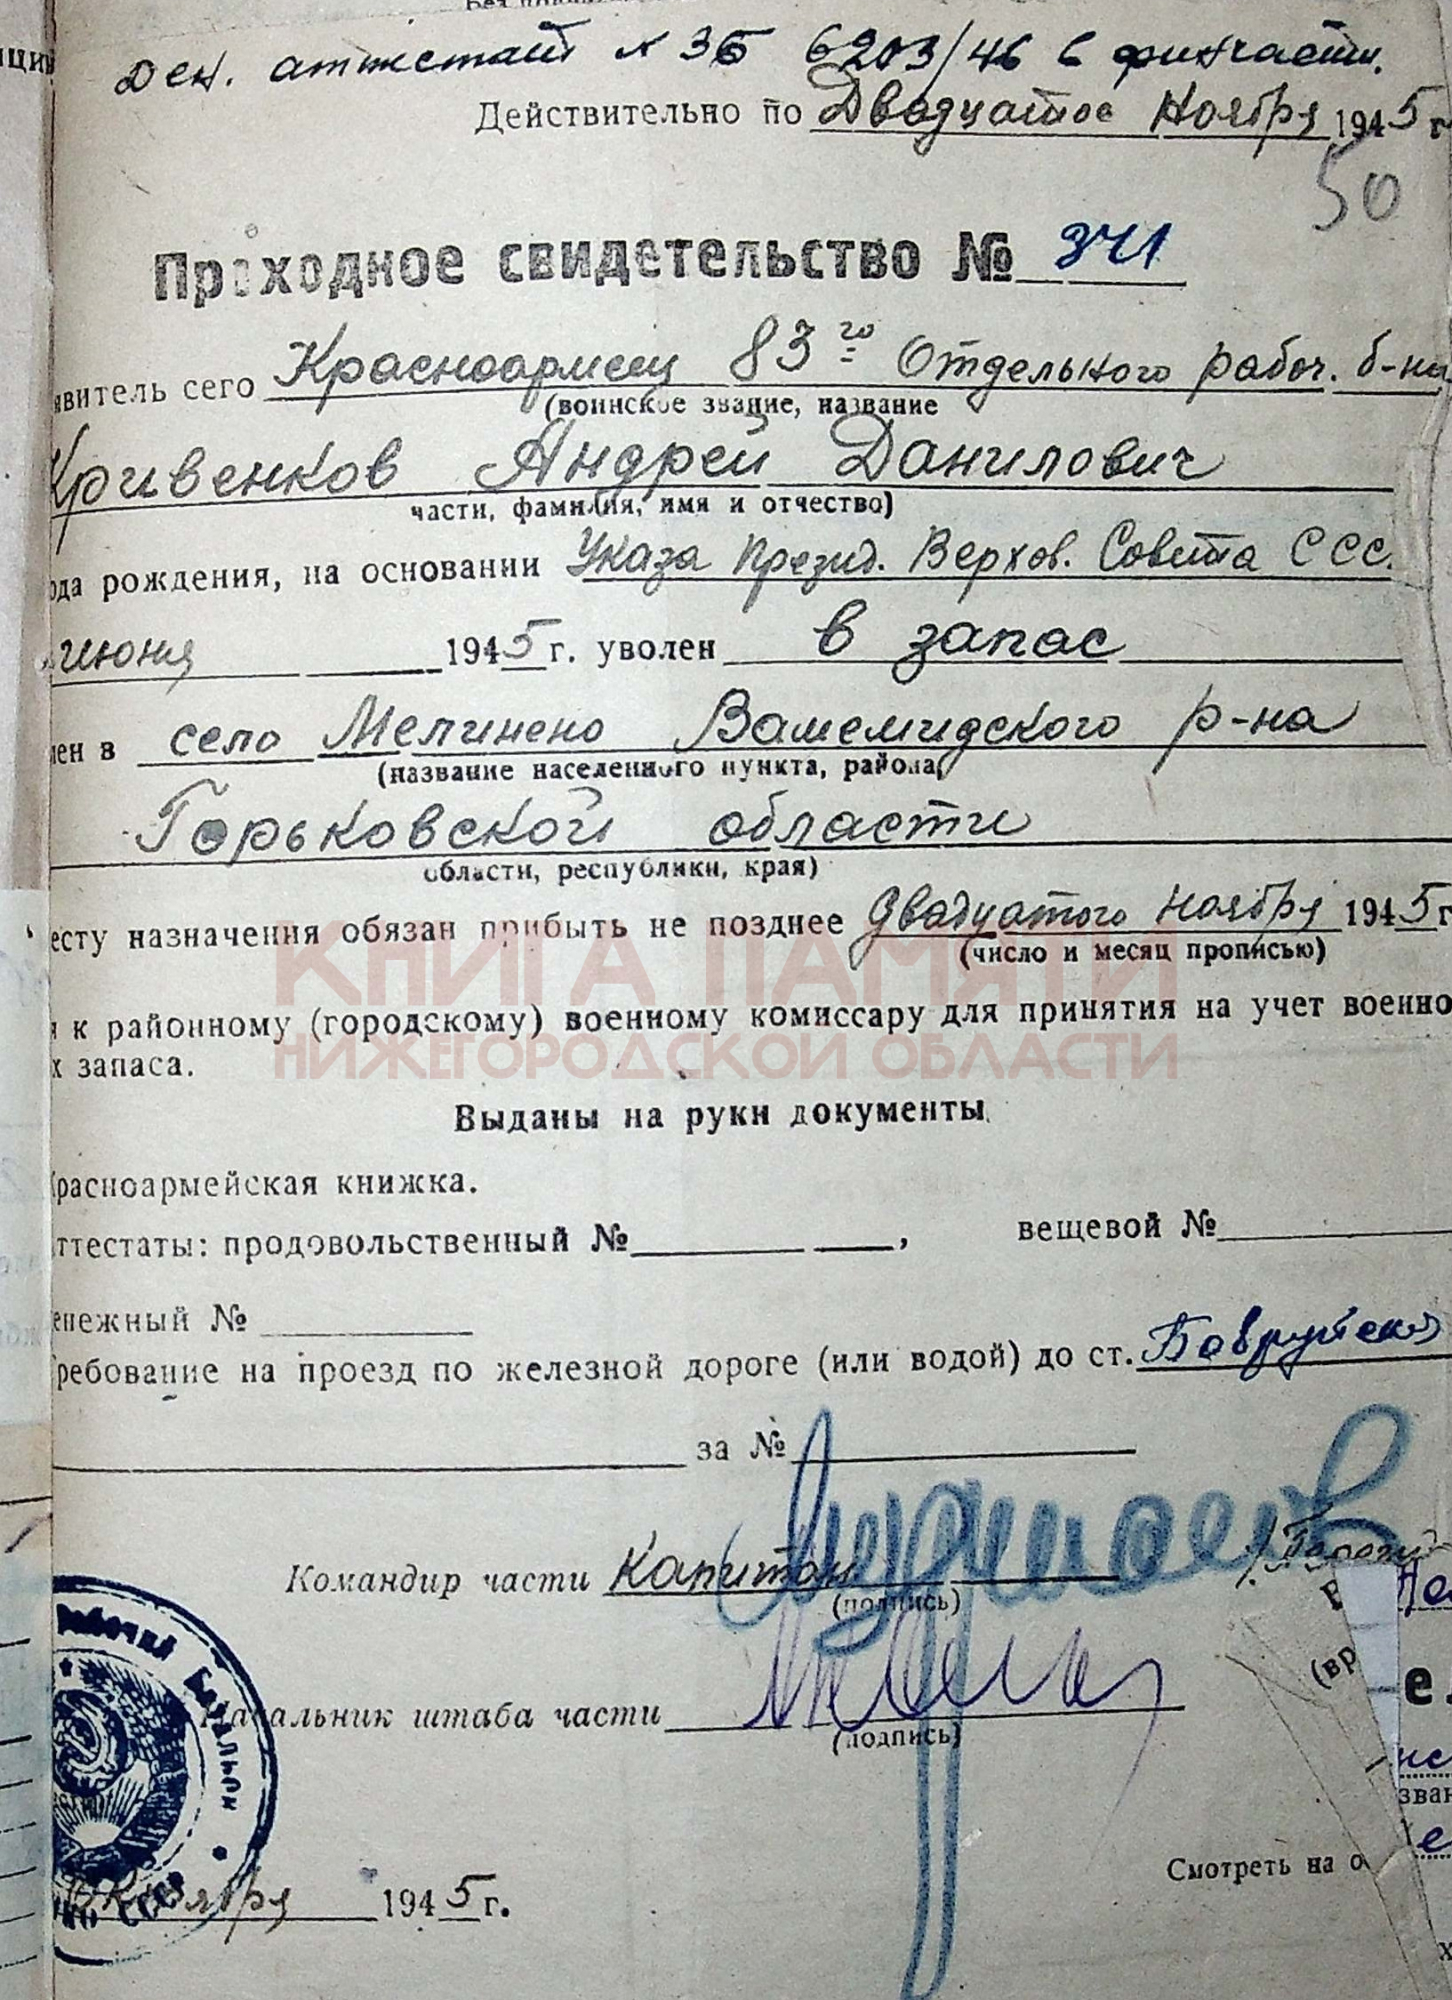 Ден. аттестат № 35 6203/46 в финчасти.
Действительно по Двадцатое Ноября 1945 г
50
Проходное свидетельство № 341
явитель сего Красноармеец 83го Отдельного рабоч. б-на
(воинское звание, название
Кривенков Андрей Данилович
части, фамилия, имя и отчество)
ода рождения, на основании Указа Презид. Верхов. Совета ССС.
июня 1945 г. уволен в запас
ен в село Мелинено р-на
(название населенного пункта, района,
Горьковской области
области, республики, края)
есту назначения обязан прибыть не позднее двадцатого ноября 1945 г
(число и месяц прописью)
КНИГА ПАМЯТИ
НИЖЕГОРОДСКОЙ ОБЛАСТИ
к районному (городскому) военному комиссару для принятия на учет военно
х запаса.
Выданы на руки документы
расноармейская книжка.
ттестаты: продовольственный № , вещевой №
енежный №
ребование на проезд по железной дороге (или водой) до ст.
за №
Командир части Капитан
(подпись)
Начальник штаба части
(подпись)
рабочий батальон
СССР
Смотреть на о
октября 1945 г.